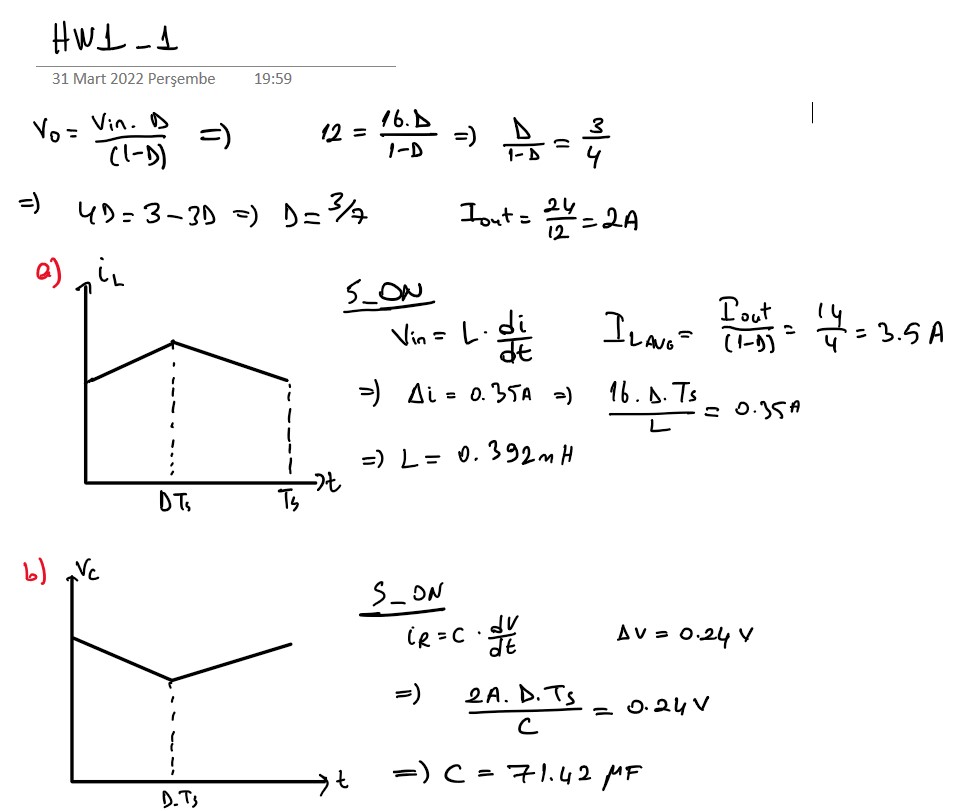 HW1_1
31 Mart 2022 Perşembe 19:59
V₀ = Vin. D / (1-D) => 12 = 16.D / 1-D => D / 1-D = 3 / 4
=> 4D = 3 - 3D => D = 3/7 Iout = 24 / 12 = 2A
a) iL
S_ON
Vin = L . di / dt ILAVG = Iout / (1-D) = 14 / 4 = 3.5 A
=> Δi = 0.35A => 16. D. Ts / L = 0.35A
=> L = 0.392mH
t
DTs Ts
b) Vc
S_ON
iR = C . dV / dt ΔV = 0.24 V
=> 2A. D. Ts / C = 0.24V
=> C = 71.42 μF
t
D.Ts